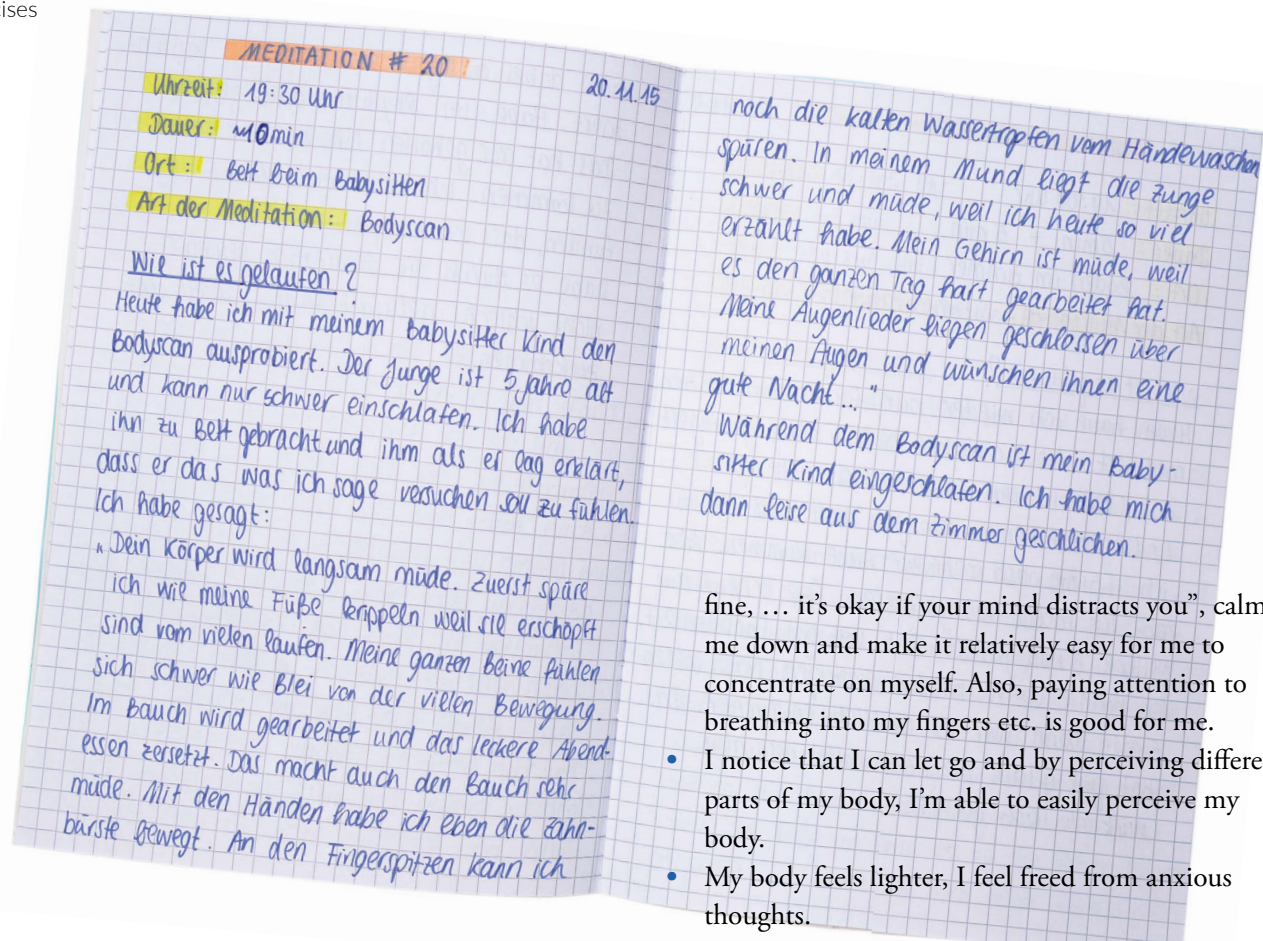 ises
MEDITATION # 20
20.11.15
Uhrzeit: 19:30 Uhr
Dauer: ~10min
Ort: Bett beim Babysitten
Art der Meditation: Bodyscan
Wie ist es gelaufen?
Heute habe ich mit meinem Babysitter Kind den
Bodyscan ausprobiert. Der Junge ist 5 Jahre alt
und kann nur schwer einschlafen. Ich habe
ihn zu Bett gebracht und ihm als er lag erklärt,
dass er das was ich sage versuchen soll zu fühlen.
Ich habe gesagt:
„Dein Körper wird langsam müde. Zuerst spüre
ich wie meine Füße krippeln weil sie erschöpft
sind vom vielen laufen. Meine ganzen Beine fühlen
sich schwer wie Blei von der vielen Bewegung.
Im Bauch wird gearbeitet und das leckere Abend-
essen zersetzt. Das macht auch den Bauch sehr
müde. Mit den Händen habe ich eben die Zahn-
bürste bewegt. An den Fingerspitzen kann ich
noch die kalten Wassertropfen vom Händewaschen
spüren. In meinem Mund liegt die Zunge
schwer und müde, weil ich heute so viel
erzählt habe. Mein Gehirn ist müde, weil
es den ganzen Tag hart gearbeitet hat.
Meine Augenlieder liegen geschlossen über
meinen Augen und wünschen ihnen eine
gute Nacht..."
Während dem Bodyscan ist mein Baby-
sitter Kind eingeschlafen. Ich habe mich
dann leise aus dem Zimmer geschlichen.
fine, … it's okay if your mind distracts you”, calm
me down and make it relatively easy for me to
concentrate on myself. Also, paying attention to
breathing into my fingers etc. is good for me.
• I notice that I can let go and by perceiving differe
parts of my body, I'm able to easily perceive my
body.
• My body feels lighter, I feel freed from anxious
thoughts.